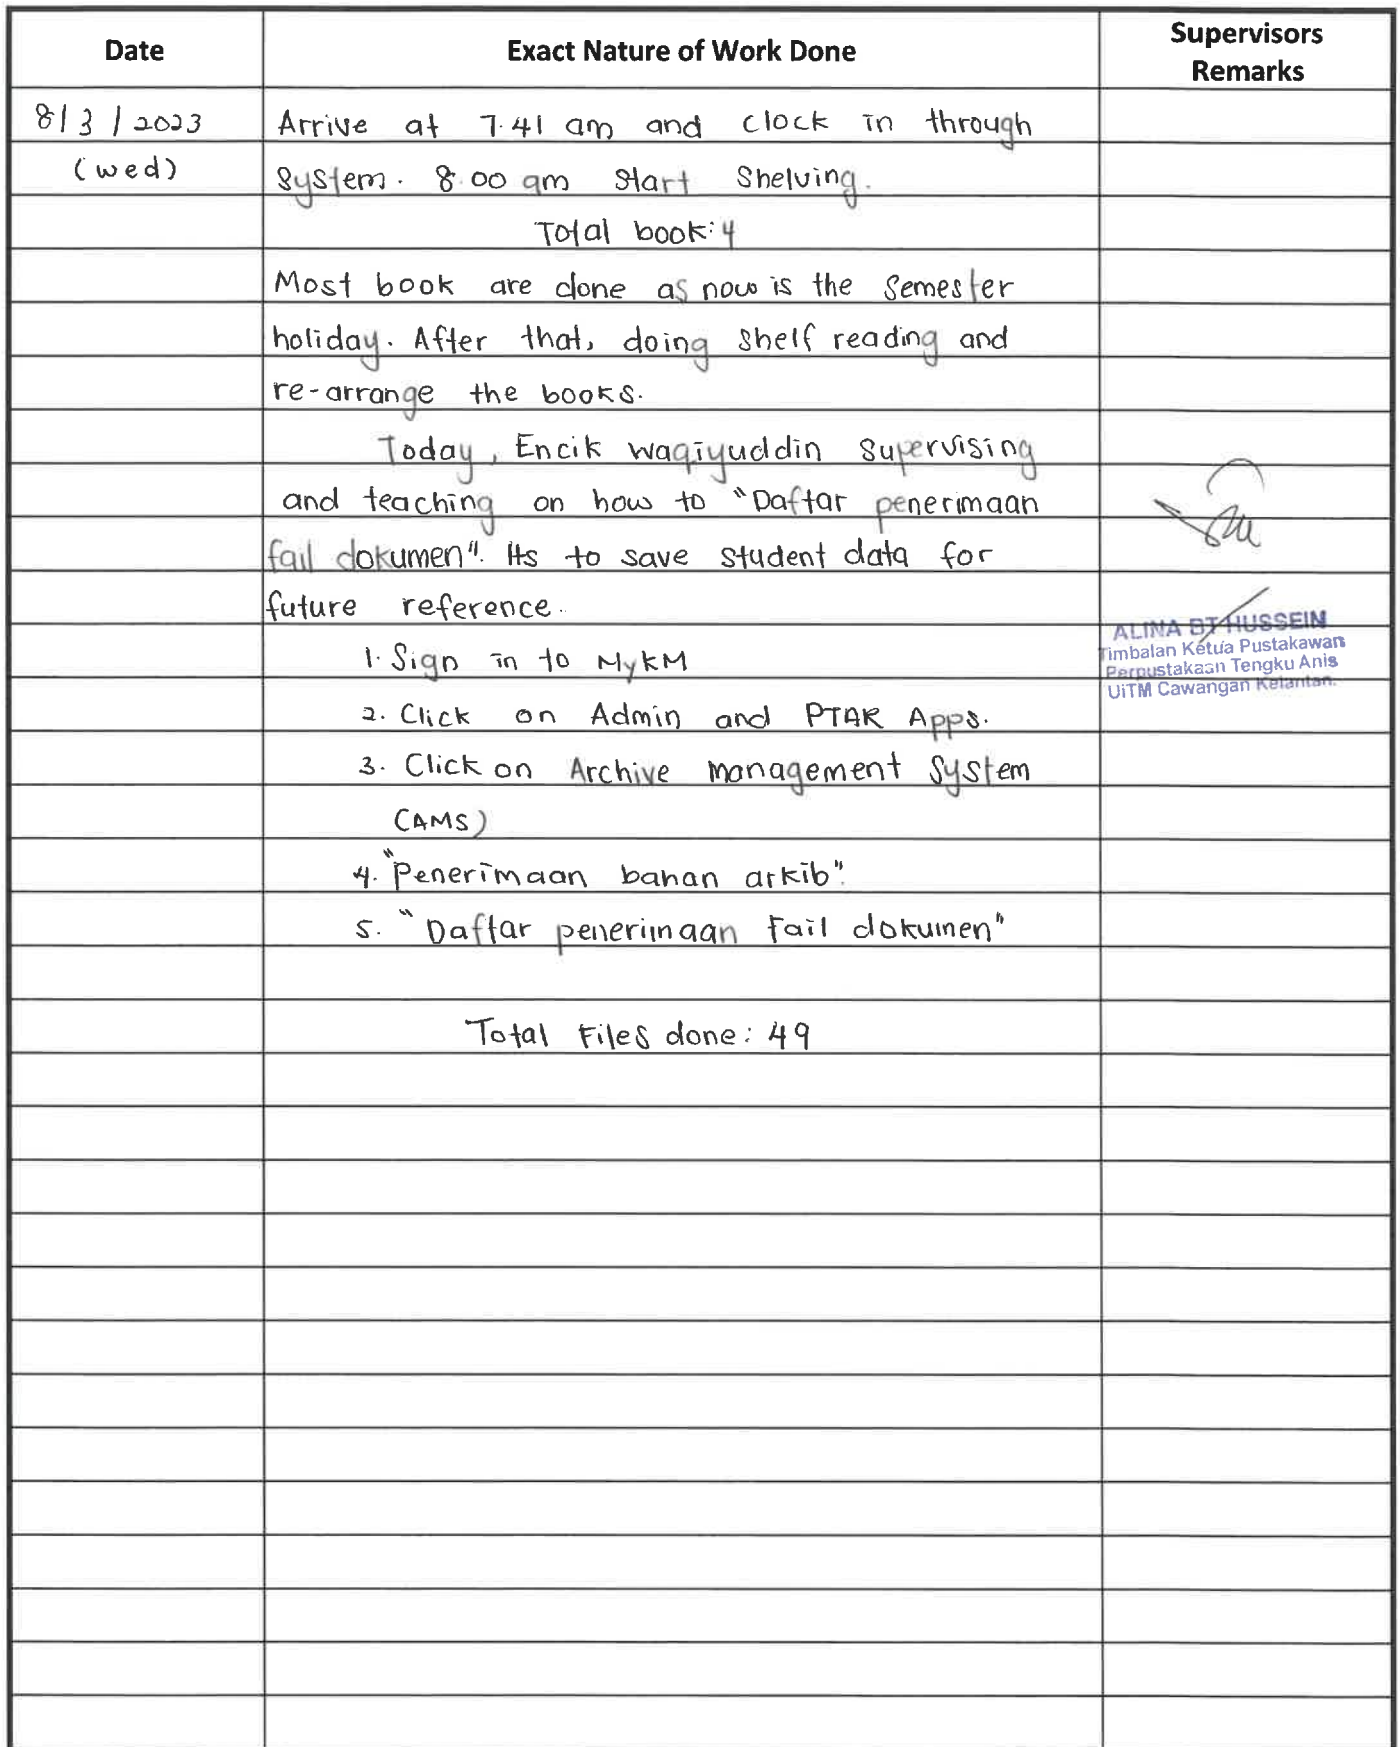 Date
Exact Nature of Work Done
Supervisors
Remarks
8/3/2023
(wed)
Arrive at 7.41 am and clock in through
System. 8.00 am start Shelving.
Total book: 4
Most book are done as now is the Semester
holiday. After that, doing Shelf reading and
re-arrange the books.
Today, Encik Waqiyuddin Supervising
and teaching on how to "Daftar penerimaan
fail dokumen". Its to save student data for
future reference.
1. Sign in to MyKM
2. Click on Admin and PTAR Apps.
3. Click on Archive Management System
(AMS)
4. "Penerimaan bahan arkib".
5. "Daftar penerimaan Fail dokumen"
Total Files done: 49
ALINA BT HUSSEIN
Timbalan Ketua Pustakawan
Perpustakaan Tengku Anis
UiTM Cawangan Kelantan.